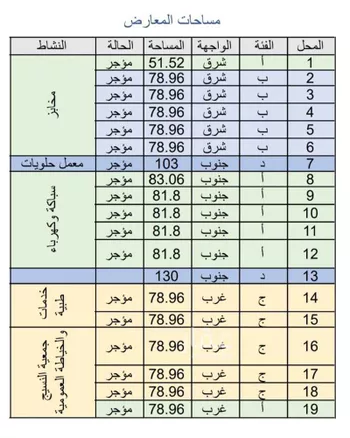 مساحات المعارض
المحل الفئة الواجهة المساحة الحالة النشاط
1 أ شرق 51.52 مؤجر مخابز
2 ب شرق 78.96 مؤجر
3 ب شرق 78.96 مؤجر
4 ب شرق 78.96 مؤجر
5 ب شرق 78.96 مؤجر
6 ب شرق 78.96 مؤجر
7 د جنوب 103 مؤجر معمل حلويات
8 أ جنوب 83.06 مؤجر سباكة وكهرباء
9 أ جنوب 81.8 مؤجر
10 أ جنوب 81.8 مؤجر
11 أ جنوب 81.8 مؤجر
12 أ جنوب 81.8 مؤجر
13 د جنوب 130
14 ج غرب 78.96 مؤجر خدمات طبية
15 ج غرب 78.96 مؤجر
16 ج غرب 78.96 مؤجر جمعية النسيج والخياطة العمومية
17 ج غرب 78.96 مؤجر
18 ج غرب 78.96 مؤجر
19 أ غرب 78.96 مؤجر